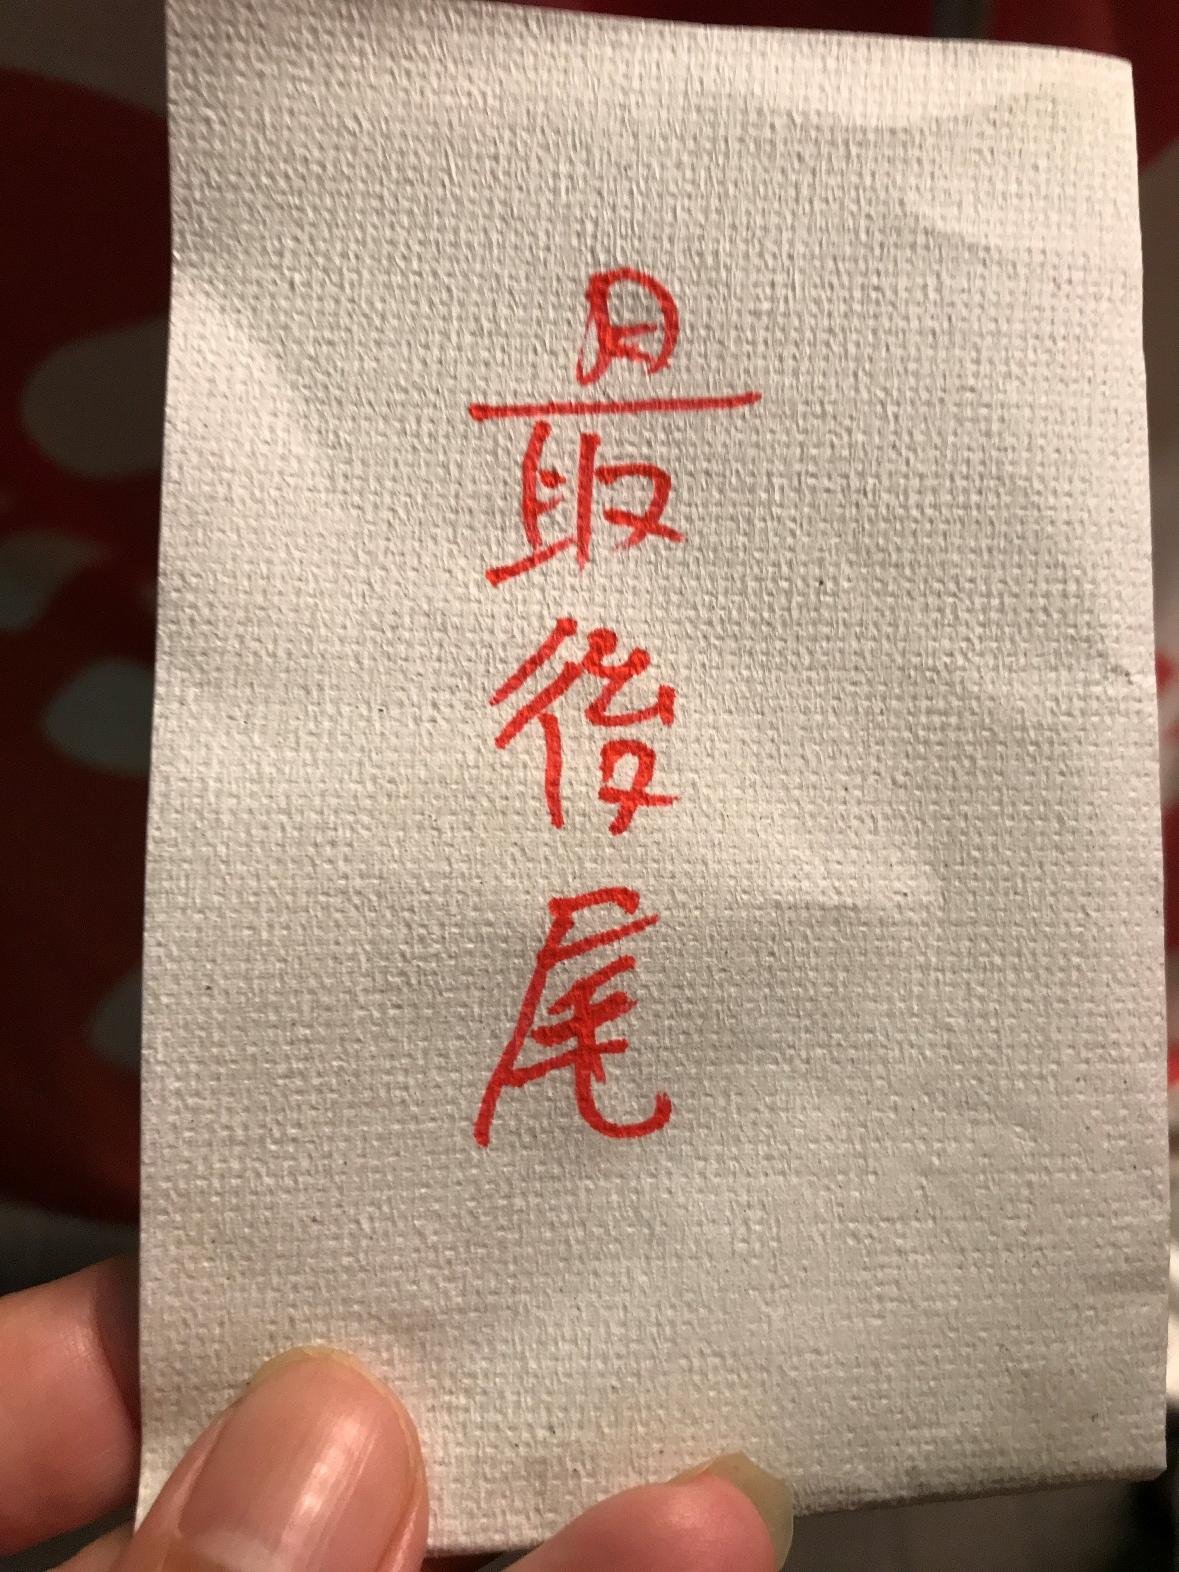 最後尾